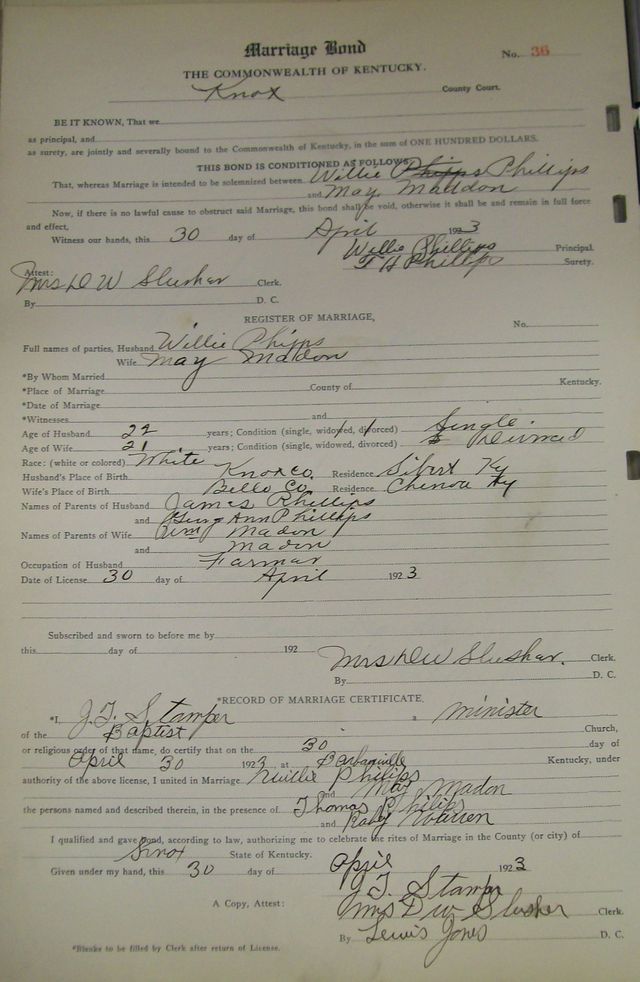 Marriage Bond
No. 36
THE COMMONWEALTH OF KENTUCKY.
Knox County Court.
BE IT KNOWN, That we
as principal, and
as surety, are jointly and severally bound to the Commonwealth of Kentucky, in the sum of ONE HUNDRED DOLLARS.
THIS BOND IS CONDITIONED AS FOLLOWS:
That, whereas Marriage is intended to be solemnized between Willie Phipps Phillips
and May Maddon
Now, if there is no lawful cause to obstruct said Marriage, this bond shall be void, otherwise it shall be and remain in full force
and effect,
Witness our hands, this 30 day of April 1923
Willie Phillips Principal.
T H Phillips Surety.
Attest:
Mrs D W Slushar Clerk.
By D. C.
REGISTER OF MARRIAGE,
No.
Full names of parties, Husband Willie Phipps
Wife May Madon
*By Whom Married
*Place of Marriage County of Kentucky.
*Date of Marriage
*Witnesses and
Age of Husband 22 years; Condition (single, widowed, divorced) Single
Age of Wife 21 years; Condition (single, widowed, divorced) Divorced
Race: (white or colored) White
Husband's Place of Birth Knox Co. Residence Sibert Ky
Wife's Place of Birth Belle Co. Residence Chenoa Ky
Names of Parents of Husband James Phillips
and Ann Phillips
Names of Parents of Wife Wm Madon
and Madon
Occupation of Husband Farmar
Date of License 30 day of April 1923
Subscribed and sworn to before me by
this day of 192
Mrs D W Slushar. Clerk.
By D. C.
*RECORD OF MARRIAGE CERTIFICATE.
*I, J. T. Stamper a minister
of the Baptist Church,
or religious order of that name, do certify that on the 30 day of
April 30 1923, at Barbarville Kentucky, under
authority of the above license, I united in Marriage Willie Philips
and May Madon
the persons named and described therein, in the presence of Thomas Philips
and Warren
I qualified and gave bond, according to law, authorizing me to celebrate the rites of Marriage in the County (or city) of
Knox State of Kentucky.
Given under my hand, this 30 day of April 1923
J. T. Stamper
A Copy, Attest: Mrs D W Slusher Clerk.
By Lewis Jones D. C.
*Blanks to be filled by Clerk after return of License.